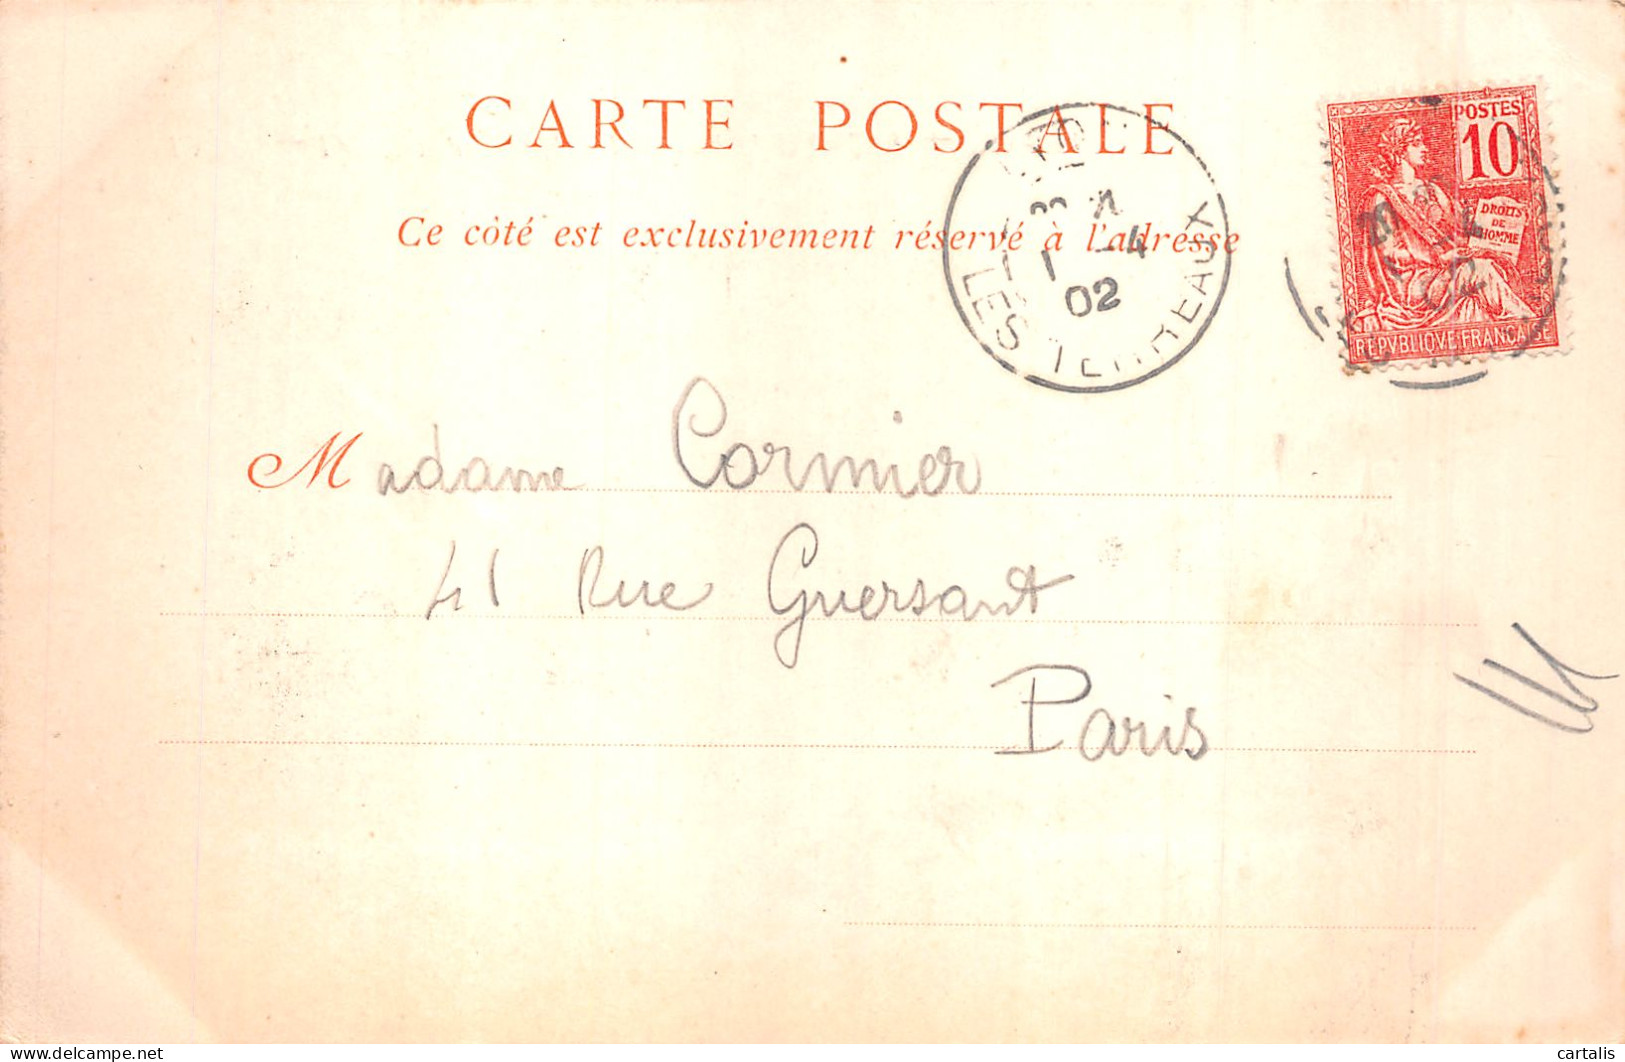 CARTE POSTALE
Ce côté est exclusivement réservé à l'adresse
POSTES
10
DROITS
DE
HOMME
REPVBLIQVE FRANCAISE
-4
02
LES TERREAUX
Madame Cormier
41 Rue Guersant
Paris
delcampe.net
cartalis